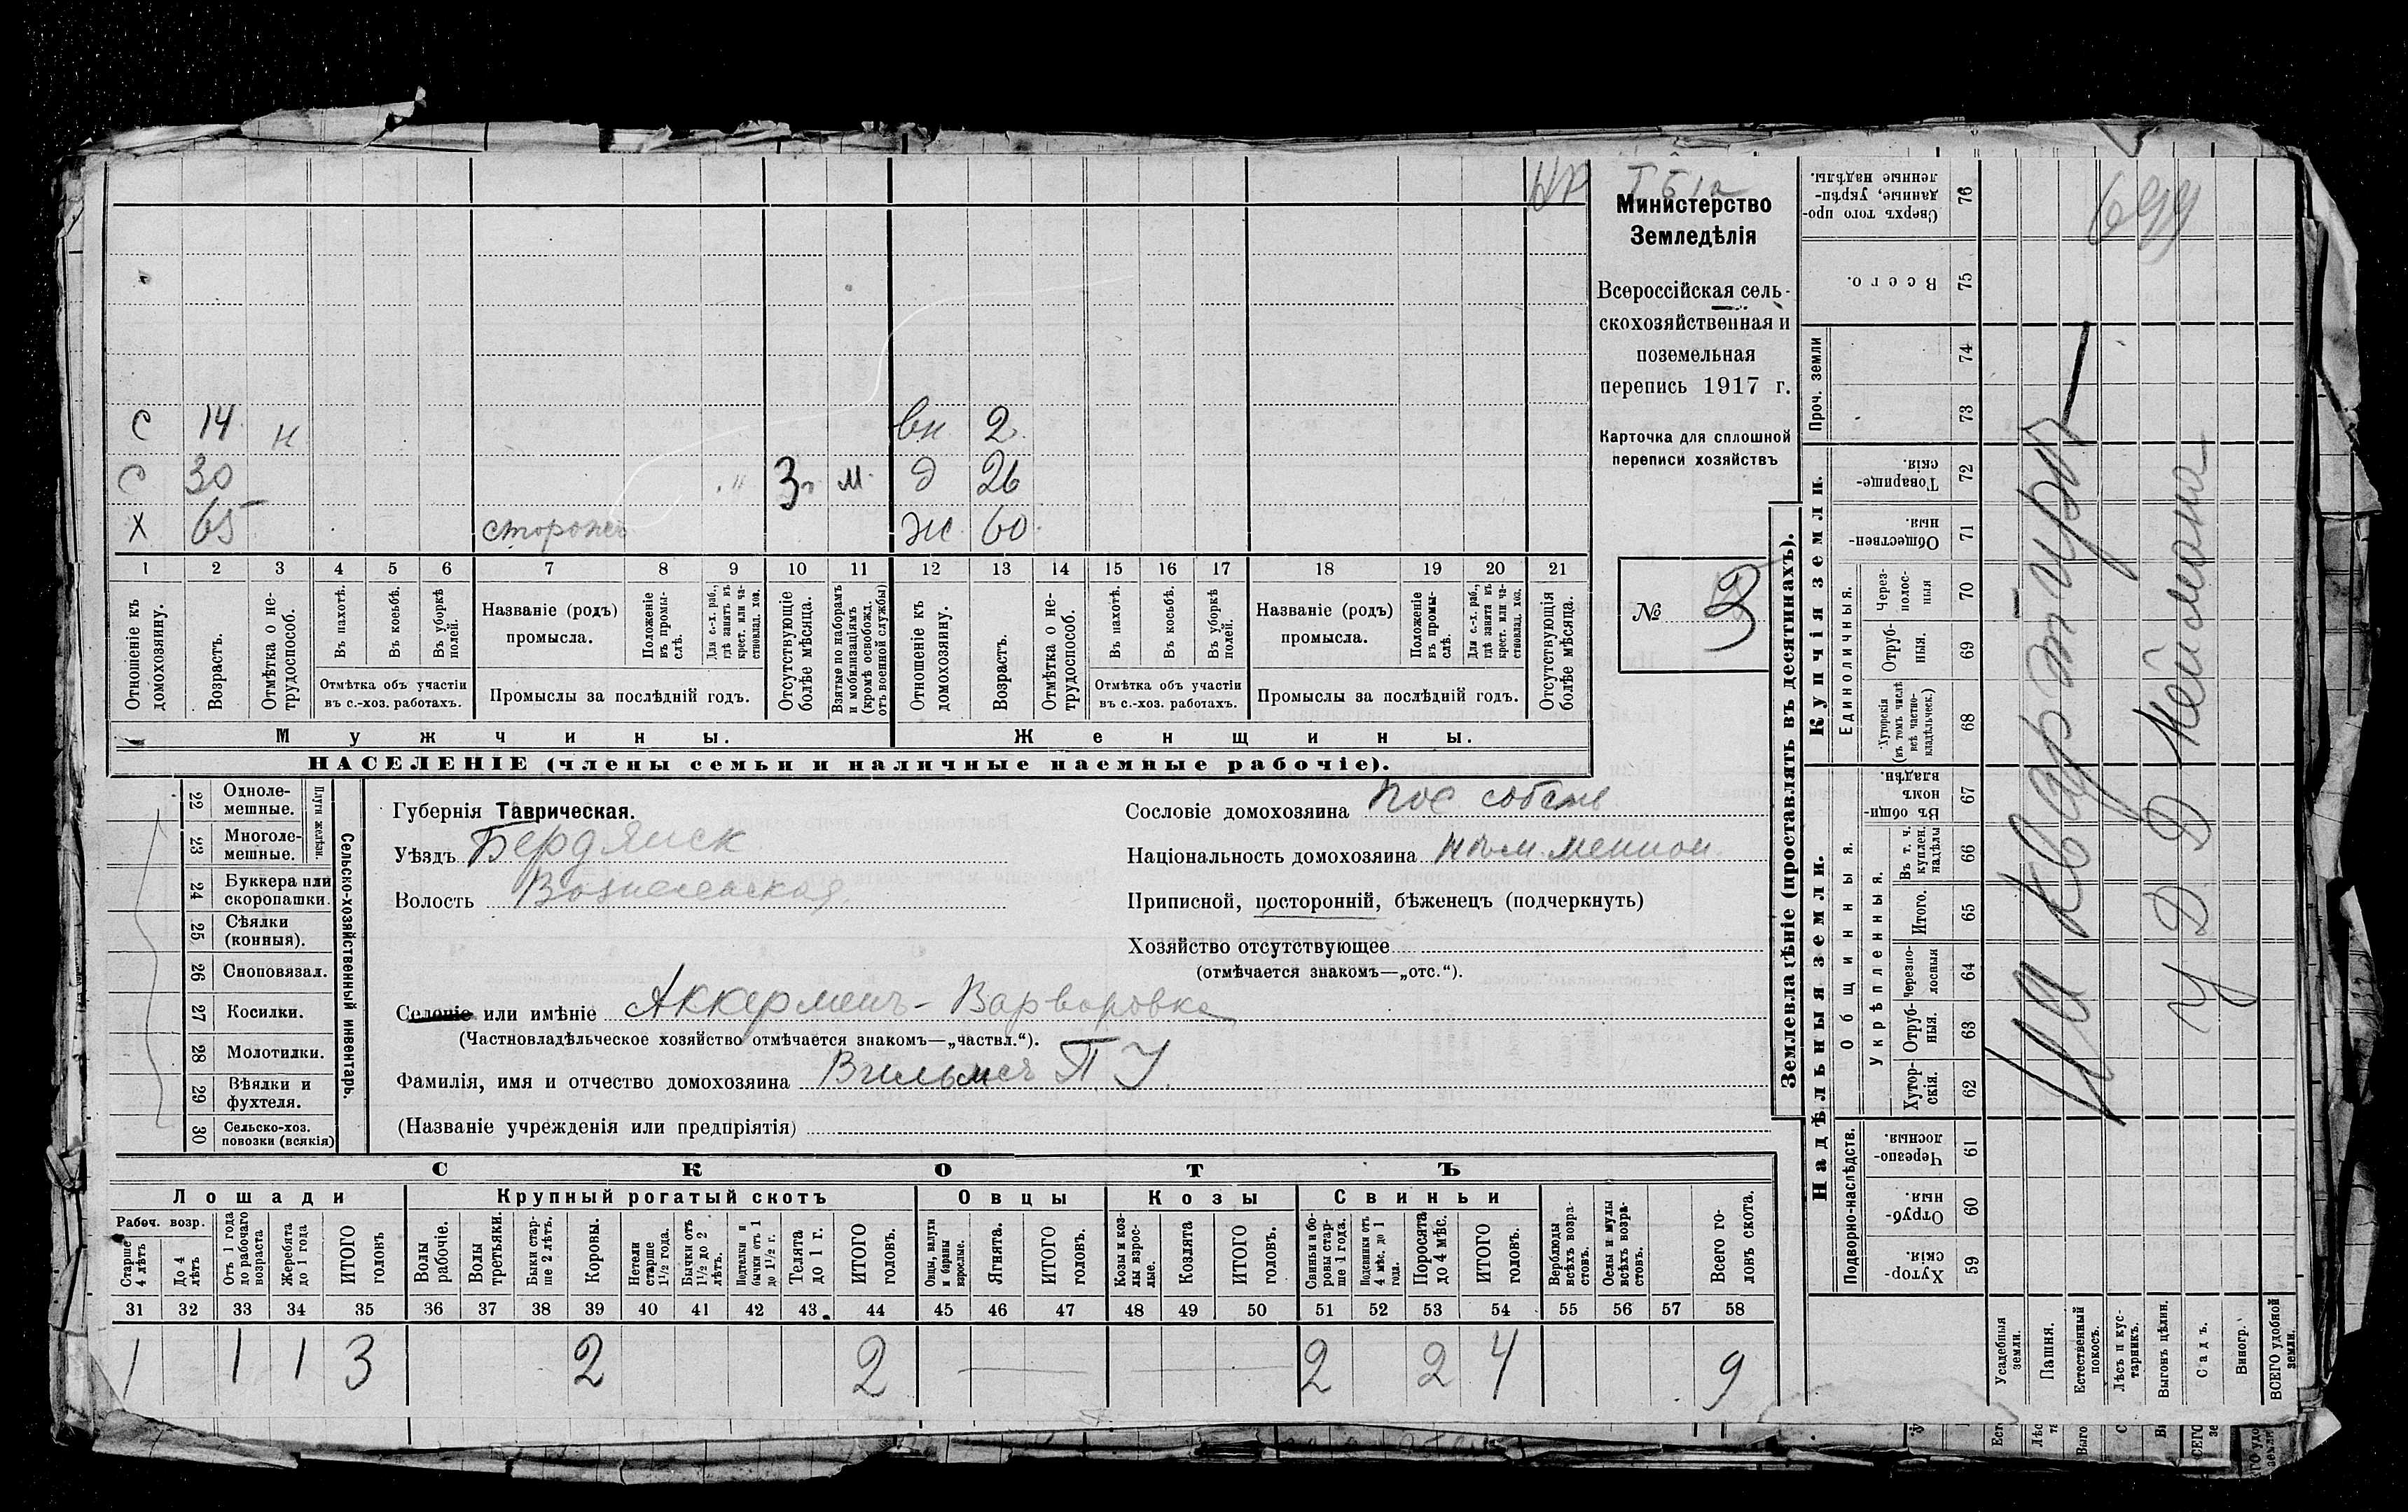 НР
Министерство
Земледѣлія
Всероссійская сель-
скохозяйственная и
поземельная
перепись 1917 г.
Карточка для сплошной
переписи хозяйствъ
№ 3
699
С 14 н вн 2
С 30 " 3 м д 26
Х 65 сторожъ ж 60
1 2 3 4 5 6 7 8 9 10 11 12 13 14 15 16 17 18 19 20 21
Отношеніе къ домохозяину.
Возрастъ.
Отмѣтка о нетрудоспособ.
Въ пахотѣ.
Въ косьбѣ.
Въ уборкѣ полей.
Отмѣтка объ участіи
въ с.-хоз. работахъ.
Названіе (родъ)
промысла.
Положеніе въ промыслѣ.
Для с.-х. раб., гдѣ занятъ въ крест. или частновлад. хоз.
Промыслы за послѣдній годъ.
Отсутствующіе болѣе мѣсяца.
Взятые по наборамъ и мобилизаціямъ (кромѣ освобожд. отъ военной службы)
Отношеніе къ домохозяину.
Возрастъ.
Отмѣтка о нетрудоспособ.
Въ пахотѣ.
Въ косьбѣ.
Въ уборкѣ полей.
Отмѣтка объ участіи
въ с.-хоз. работахъ.
Названіе (родъ)
промысла.
Положеніе въ промыслѣ.
Для с.-х. раб., гдѣ занятъ въ крест. или частновлад. хоз.
Промыслы за послѣдній годъ.
Отсутствующія болѣе мѣсяца.
Мужчины. Женщины.
НАСЕЛЕНІЕ (члены семьи и наличные наемные рабочіе).
Сельско-хозяйственный инвентарь.
Плуги желѣзн.
22 Одноле-
мешные.
23 Многоле-
мешные.
24 Буккера или
скоропашки.
25 Сѣялки
(конныя).
26 Сноповязал.
27 Косилки.
28 Молотилки.
29 Вѣялки и
фухтеля.
30 Сельско-хоз.
повозки (всякія)
Губернія Таврическая.
Уѣздъ Бердянск
Волость Вознесенская
Селеніе или имѣніе Аккерменъ - Варваровка
(Частновладѣльческое хозяйство отмѣчается знакомъ—„частвл.“).
Фамилія, имя и отчество домохозяина Вильмсъ П У
(Названіе учрежденія или предпріятія)
Сословіе домохозяина пос собств
Національность домохозяина нѣм. менон.
Приписной, посторонній, бѣженецъ (подчеркнуть)
Хозяйство отсутствующее
(отмѣчается знакомъ—„отс.“).
СКОТЪ
Лошади Крупный рогатый скотъ Овцы Козы Свиньи
Рабоч. возр.
Старше 4 лѣтъ
До 4 лѣтъ
Отъ 1 года до рабочаго возраста
Жеребята до 1 года
ИТОГО головъ
Волы рабочіе.
Волы третьяки.
Быки старше 2 лѣтъ.
Коровы.
Нетели старше 1½ года.
Бычки отъ 1½ до 2 лѣтъ.
Подтелки и бычки отъ 1 до 1½ г.
Телята до 1 г.
ИТОГО головъ.
Овцы, валухи и бараны взрослые.
Ягнята.
ИТОГО головъ.
Козы и козлы взрослые.
Козлята
ИТОГО головъ.
Свиньи и боровы старше 1 года.
Подсвинки отъ 4 мѣс. до 1 года.
Поросята до 4 мѣс.
ИТОГО головъ.
Верблюды всѣхъ возрастовъ.
Ослы и мулы всѣхъ возрастовъ.
Всего головъ скота.
31 32 33 34 35 36 37 38 39 40 41 42 43 44 45 46 47 48 49 50 51 52 53 54 55 56 57 58
1 1 1 3 2 2 2 2 4 9
Землевладѣніе (проставлять въ десятинахъ).
Надѣльныя земли. Купчія земли.
Подворно-наслѣдств.
Общинныя.
Укрѣпленныя.
Единоличныя.
Проч. земли
59 Хуторскія.
60 Отрубныя.
61 Черезполосныя.
62 Хуторскія.
63 Отрубныя.
64 Черезполосныя
65 Итого.
66 Въ т. ч. куплен. надѣлы
67 Въ общинномъ владѣн.
68 Хуторскія (въ томъ числѣ всѣ частновладѣльческ.)
69 Отрубныя.
70 Черезполосныя
71 Общественныя.
72 Товарищескія.
73
74
75 Всего.
76 Сверхъ того проданные, укрѣпленные надѣлы.
Усадебныя земли.
Пашня.
Естественный покосъ.
Лѣсъ и кустарникъ.
Выгонъ цѣлин.
Садъ.
Виногр.
ВСЕГО удобной земли.
На квартирѣ
у Д Д Неймана